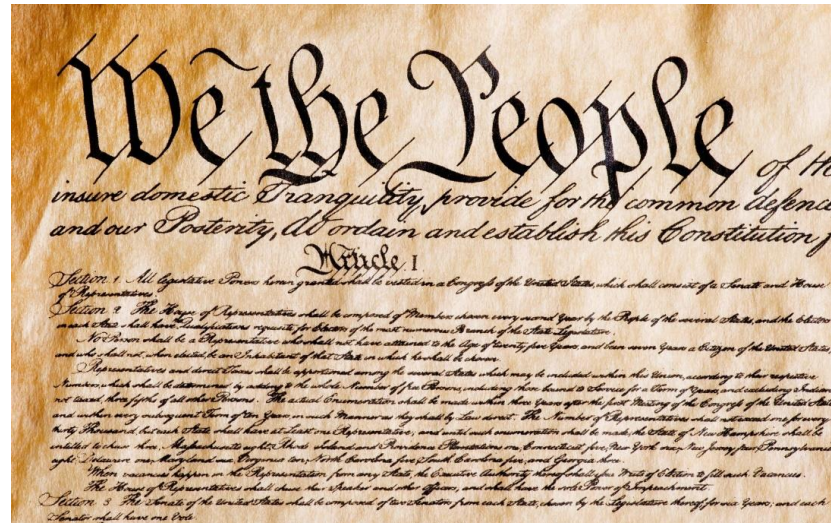 We the People of the
insure domestic Tranquility, provide for the common defence
and our Posterity, do ordain and establish this Constitution f
Article I
Section 1. All legislative Powers herein granted shall be vested in a Congress of the United States, which shall consist of a Senate and House
of Representatives.
Section 2. The House of Representatives shall be composed of Members chosen every second Year by the People of the several States, and the Electors
in each State shall have Qualifications requisite for Electors of the most numerous Branch of the State Legislature.
No Person shall be a Representative who shall not have attained to the Age of twenty five Years, and been seven Years a Citizen of the United States,
and who shall not, when elected, be an Inhabitant of that State in which he shall be chosen.
Representatives and direct Taxes shall be apportioned among the several States which may be included within this Union, according to their respective
Numbers, which shall be determined by adding to the whole Number of free Persons, including those bound to Service for a Term of Years, and excluding Indians
not taxed, three fifths of all other Persons. The actual Enumeration shall be made within three Years after the first Meeting of the Congress of the United States,
and within every subsequent Term of ten Years, in such Manner as they shall by Law direct. The Number of Representatives shall not exceed one for every
thirty Thousand, but each State shall have at Least one Representative; and until such enumeration shall be made, the State of New Hampshire shall be
entitled to chuse three, Massachusetts eight, Rhode Island and Providence Plantations one, Connecticut five, New York six, New Jersey four, Pennsylvania
eight, Delaware one, Maryland six, Virginia ten, North Carolina five, South Carolina five, and Georgia three.
When vacancies happen in the Representation from any State, the Executive Authority thereof shall issue Writs of Election to fill such Vacancies.
The House of Representatives shall chuse their Speaker and other Officers; and shall have the sole Power of Impeachment.
Section 3. The Senate of the United States shall be composed of two Senators from each State, chosen by the Legislature thereof, for six Years; and each
Senator shall have one Vote.